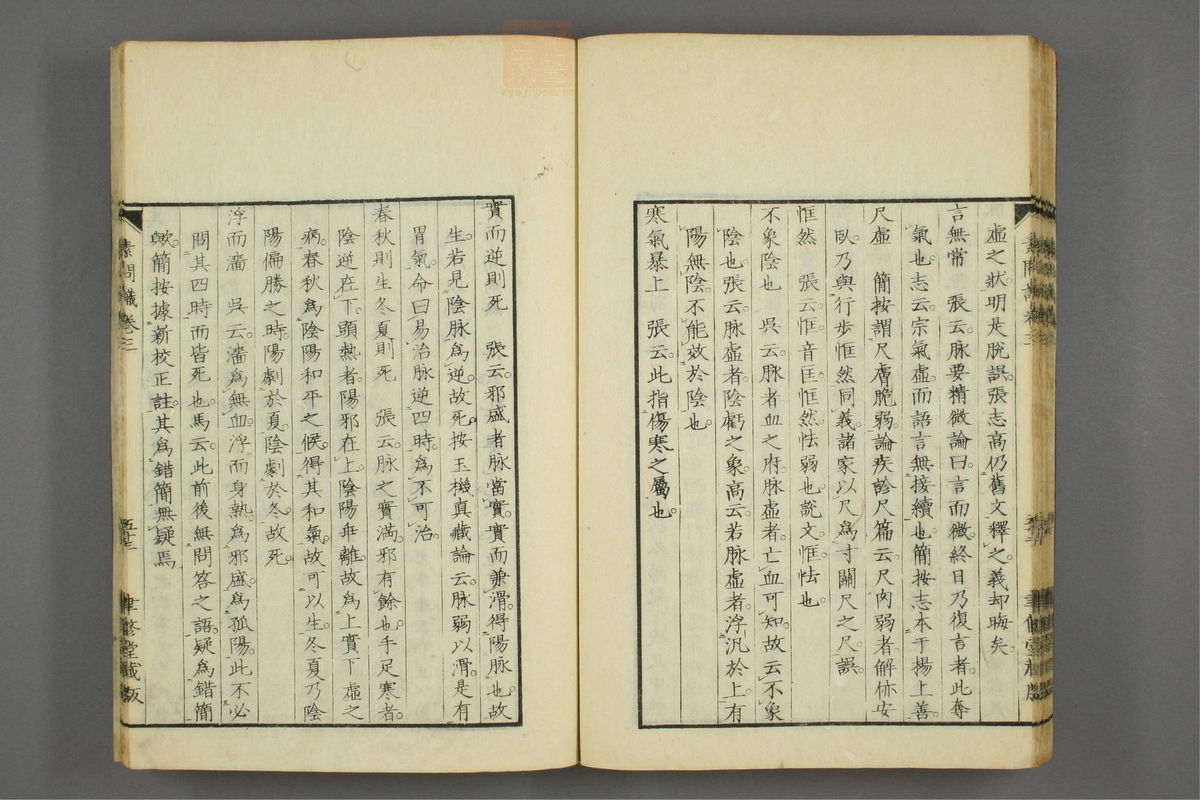 虛之狀明是脫誤張志高仍舊文釋之義却晦矣
言無常　張云脈要精微論曰言而微終日乃復言者此奪
氣也志云宗氣虛而語言無接續也簡按志本于揚上善
尺虛　簡按謂尺膚脆弱論疾診尺篇云尺肉弱者解㑊安
臥乃與行步恇然同義諸家以尺爲寸關尺之尺誤
恇然　張云恇音匡恇然怯弱也說文恇怯也
不象陰也　吳云脈者血之府脈虛者亡血可知故云不象
陰也張云脈虛者陰虧之象高云若脈虛者浮汎於上有
陽無陰不能效於陰也
寒氣暴上　張云此指傷寒之屬也
實而逆則死　張云邪盛者脈當實實而兼滑得陽脈也故
生若見陰脈爲逆故死按玉機真藏論云脈弱以滑是有
胃氣命曰易治脈逆四時爲不可治
春秋則生冬夏則死　張云脈之實滿邪有餘也手足寒者
陰逆在下頭熱者陽邪在上陰陽乖離故爲上實下虛之
病春秋爲陰陽和平之候得其和氣故可以生冬夏乃陰
陽偏勝之時陽劇於夏陰劇於冬故死
浮而濇　吳云濇爲無血浮而身熱爲邪盛爲孤陽此不必
問其四時而皆死也馬云此前後無問答之語疑爲錯簡
歟簡按據新校正註其爲錯簡無疑焉
素問識卷三
五十三
聿修堂藏版